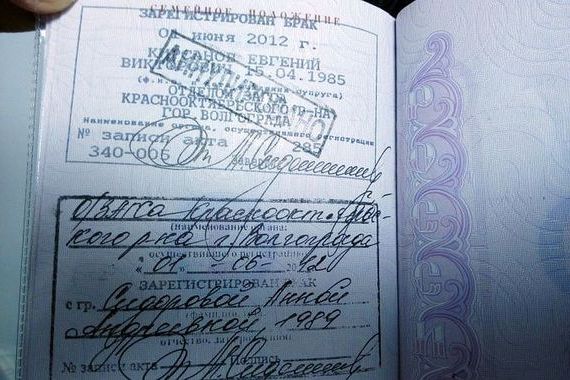 СЕМЕЙНОЕ ПОЛОЖЕНИЕ
ЗАРЕГИСТРИРОВАН БРАК
01 июня 2012 г.
ЕВГЕНИЙ
15.04.1985
(ф.и. супруга)
ОТДЕЛОМ
КРАСНООКТЯБРЬСКОГО Р-НА
ГОР. ВОЛГОГРАДА
Наименование органа, осуществившего регистрацию
№ записи акта 285
340-006
О/ЗАГСа Краснооктябрьс-
(наименование органа,
кого р-на г. Волгограда
осуществившего регистрацию)
"01" - 06 - 2012
ЗАРЕГИСТРИРОВАН БРАК
с гр. Сидоровой Анной
(фамилия,
Андреевной, 1989
отчество, дата рождения)
№ записи акта Подпись